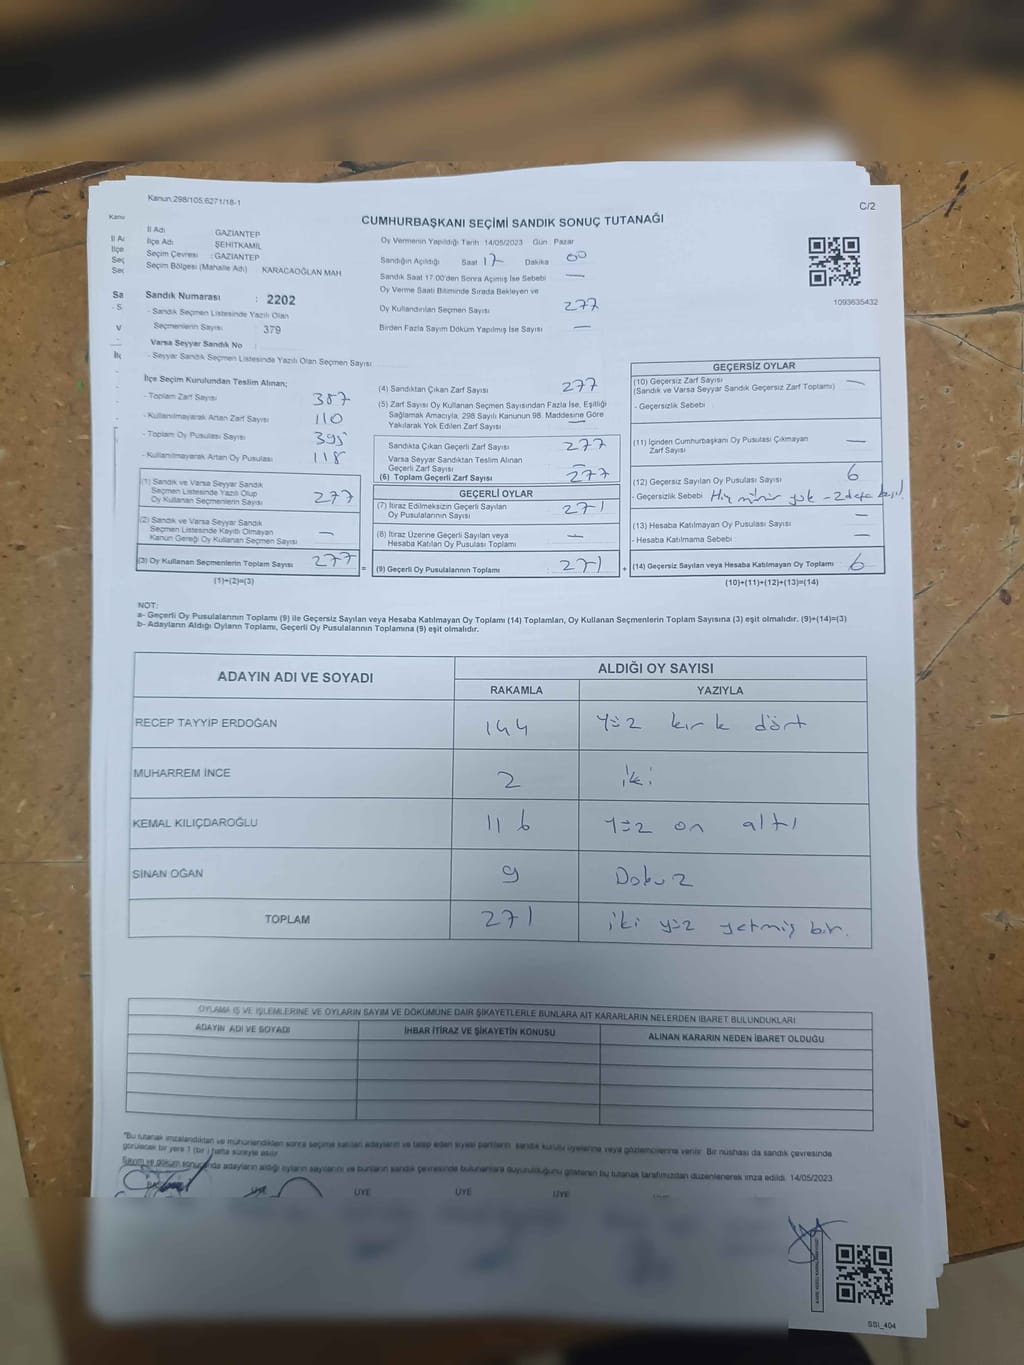 Kanun,298/105,6271/18-1
C/2
CUMHURBAŞKANI SEÇİMİ SANDIK SONUÇ TUTANAĞI
İl Adı GAZİANTEP
İlçe Adı ŞEHİTKAMİL
Seçim Çevresi : GAZİANTEP
Seçim Bölgesi (Mahalle Adı) KARACAOĞLAN MAH
Sandık Numarası : 2202
- Sandık Seçmen Listesinde Yazılı Olan
Seçmenlerin Sayısı 379
Varsa Seyyar Sandık No
- Seyyar Sandık Seçmen Listesinde Yazılı Olan Seçmen Sayısı
Oy Vermenin Yapıldığı Tarih 14/05/2023 Gün Pazar
Sandığın Açıldığı Saat 17 Dakika 00
Sandık Saat 17.00'den Sonra Açımış İse Sebebi —
Oy Verme Saati Bitiminde Sırada Bekleyen ve
Oy Kullandırılan Seçmen Sayısı 277
Birden Fazla Sayım Döküm Yapılmış İse Sayısı —
1093635432
İlçe Seçim Kurulundan Teslim Alınan;
- Toplam Zarf Sayısı 387
- Kullanılmayarak Artan Zarf Sayısı 110
- Toplam Oy Pusulası Sayısı 395
- Kullanılmayarak Artan Oy Pusulası 118
(1) Sandık ve Varsa Seyyar Sandık
Seçmen Listesinde Yazılı Olup
Oy Kullanan Seçmenlerin Sayısı 277
(2) Sandık ve Varsa Seyyar Sandık
Seçmen Listesinde Kayıtlı Olmayan
Kanun Gereği Oy Kullanan Seçmen Sayısı —
(3) Oy Kullanan Seçmenlerin Toplam Sayısı 277
(1)+(2)=(3)
(4) Sandıktan Çıkan Zarf Sayısı 277
(5) Zarf Sayısı Oy Kullanan Seçmen Sayısından Fazla İse, Eşitliği
Sağlamak Amacıyla, 298 Sayılı Kanunun 98. Maddesine Göre
Yakılarak Yok Edilen Zarf Sayısı —
Sandıkta Çıkan Geçerli Zarf Sayısı 277
Varsa Seyyar Sandıktan Teslim Alınan
Geçerli Zarf Sayısı —
(6) Toplam Geçerli Zarf Sayısı 277
GEÇERLİ OYLAR
(7) İtiraz Edilmeksizin Geçerli Sayılan
Oy Pusulalarının Sayısı 271
(8) İtiraz Üzerine Geçerli Sayılan veya
Hesaba Katılan Oy Pusulası Toplamı —
= (9) Geçerli Oy Pusulalarının Toplamı 271
GEÇERSİZ OYLAR
(10) Geçersiz Zarf Sayısı —
(Sandık ve Varsa Seyyar Sandık Geçersiz Zarf Toplamı)
- Geçersizlik Sebebi
(11) İçinden Cumhurbaşkanı Oy Pusulası Çıkmayan
Zarf Sayısı —
(12) Geçersiz Sayılan Oy Pusulası Sayısı 6
- Geçersizlik Sebebi yok - 2 defa
(13) Hesaba Katılmayan Oy Pusulası Sayısı —
- Hesaba Katılmama Sebebi —
+ (14) Geçersiz Sayılan veya Hesaba Katılmayan Oy Toplamı 6
(10)+(11)+(12)+(13)=(14)
NOT:
a- Geçerli Oy Pusulalarının Toplamı (9) ile Geçersiz Sayılan veya Hesaba Katılmayan Oy Toplamı (14) Toplamları, Oy Kullanan Seçmenlerin Toplam Sayısına (3) eşit olmalıdır. (9)+(14)=(3)
b- Adayların Aldığı Oyların Toplamı, Geçerli Oy Pusulalarının Toplamına (9) eşit olmalıdır.
ADAYIN ADI VE SOYADI
ALDIĞI OY SAYISI
RAKAMLA YAZIYLA
RECEP TAYYİP ERDOĞAN 144 Yüz kırk dört
MUHARREM İNCE 2 iki
KEMAL KILIÇDAROĞLU 116 Yüz on altı
SİNAN OĞAN 9 Dokuz
TOPLAM 271 iki yüz yetmiş bir.
OYLAMA İŞ VE İŞLEMLERİNE VE OYLARIN SAYIM VE DÖKÜMÜNE DAİR ŞİKAYETLERLE BUNLARA AİT KARARLARIN NELERDEN İBARET BULUNDUKLARI
ADAYIN ADI VE SOYADI İHBAR İTİRAZ VE ŞİKAYETİN KONUSU ALINAN KARARIN NEDEN İBARET OLDUĞU
"Bu tutanak imzalandıktan ve mühürlendikten sonra seçime katılan adayların ve talep eden siyasi partilerin sandık kurulu üyelerine veya gözlemcilerine verilir. Bir nüshası da sandık çevresinde
görülecek bir yere 1 (bir) hafta süreyle asılır.
Sayım ve döküm adayların aldığı oyların sayılarını ve bunların sandık çevresinde bulunanlara duyurulduğunu gösteren bu tutanak tarafımızdan düzenlenerek imza edildi. 14/05/2023
ÜYE ÜYE ÜYE ÜYE
SSI_404